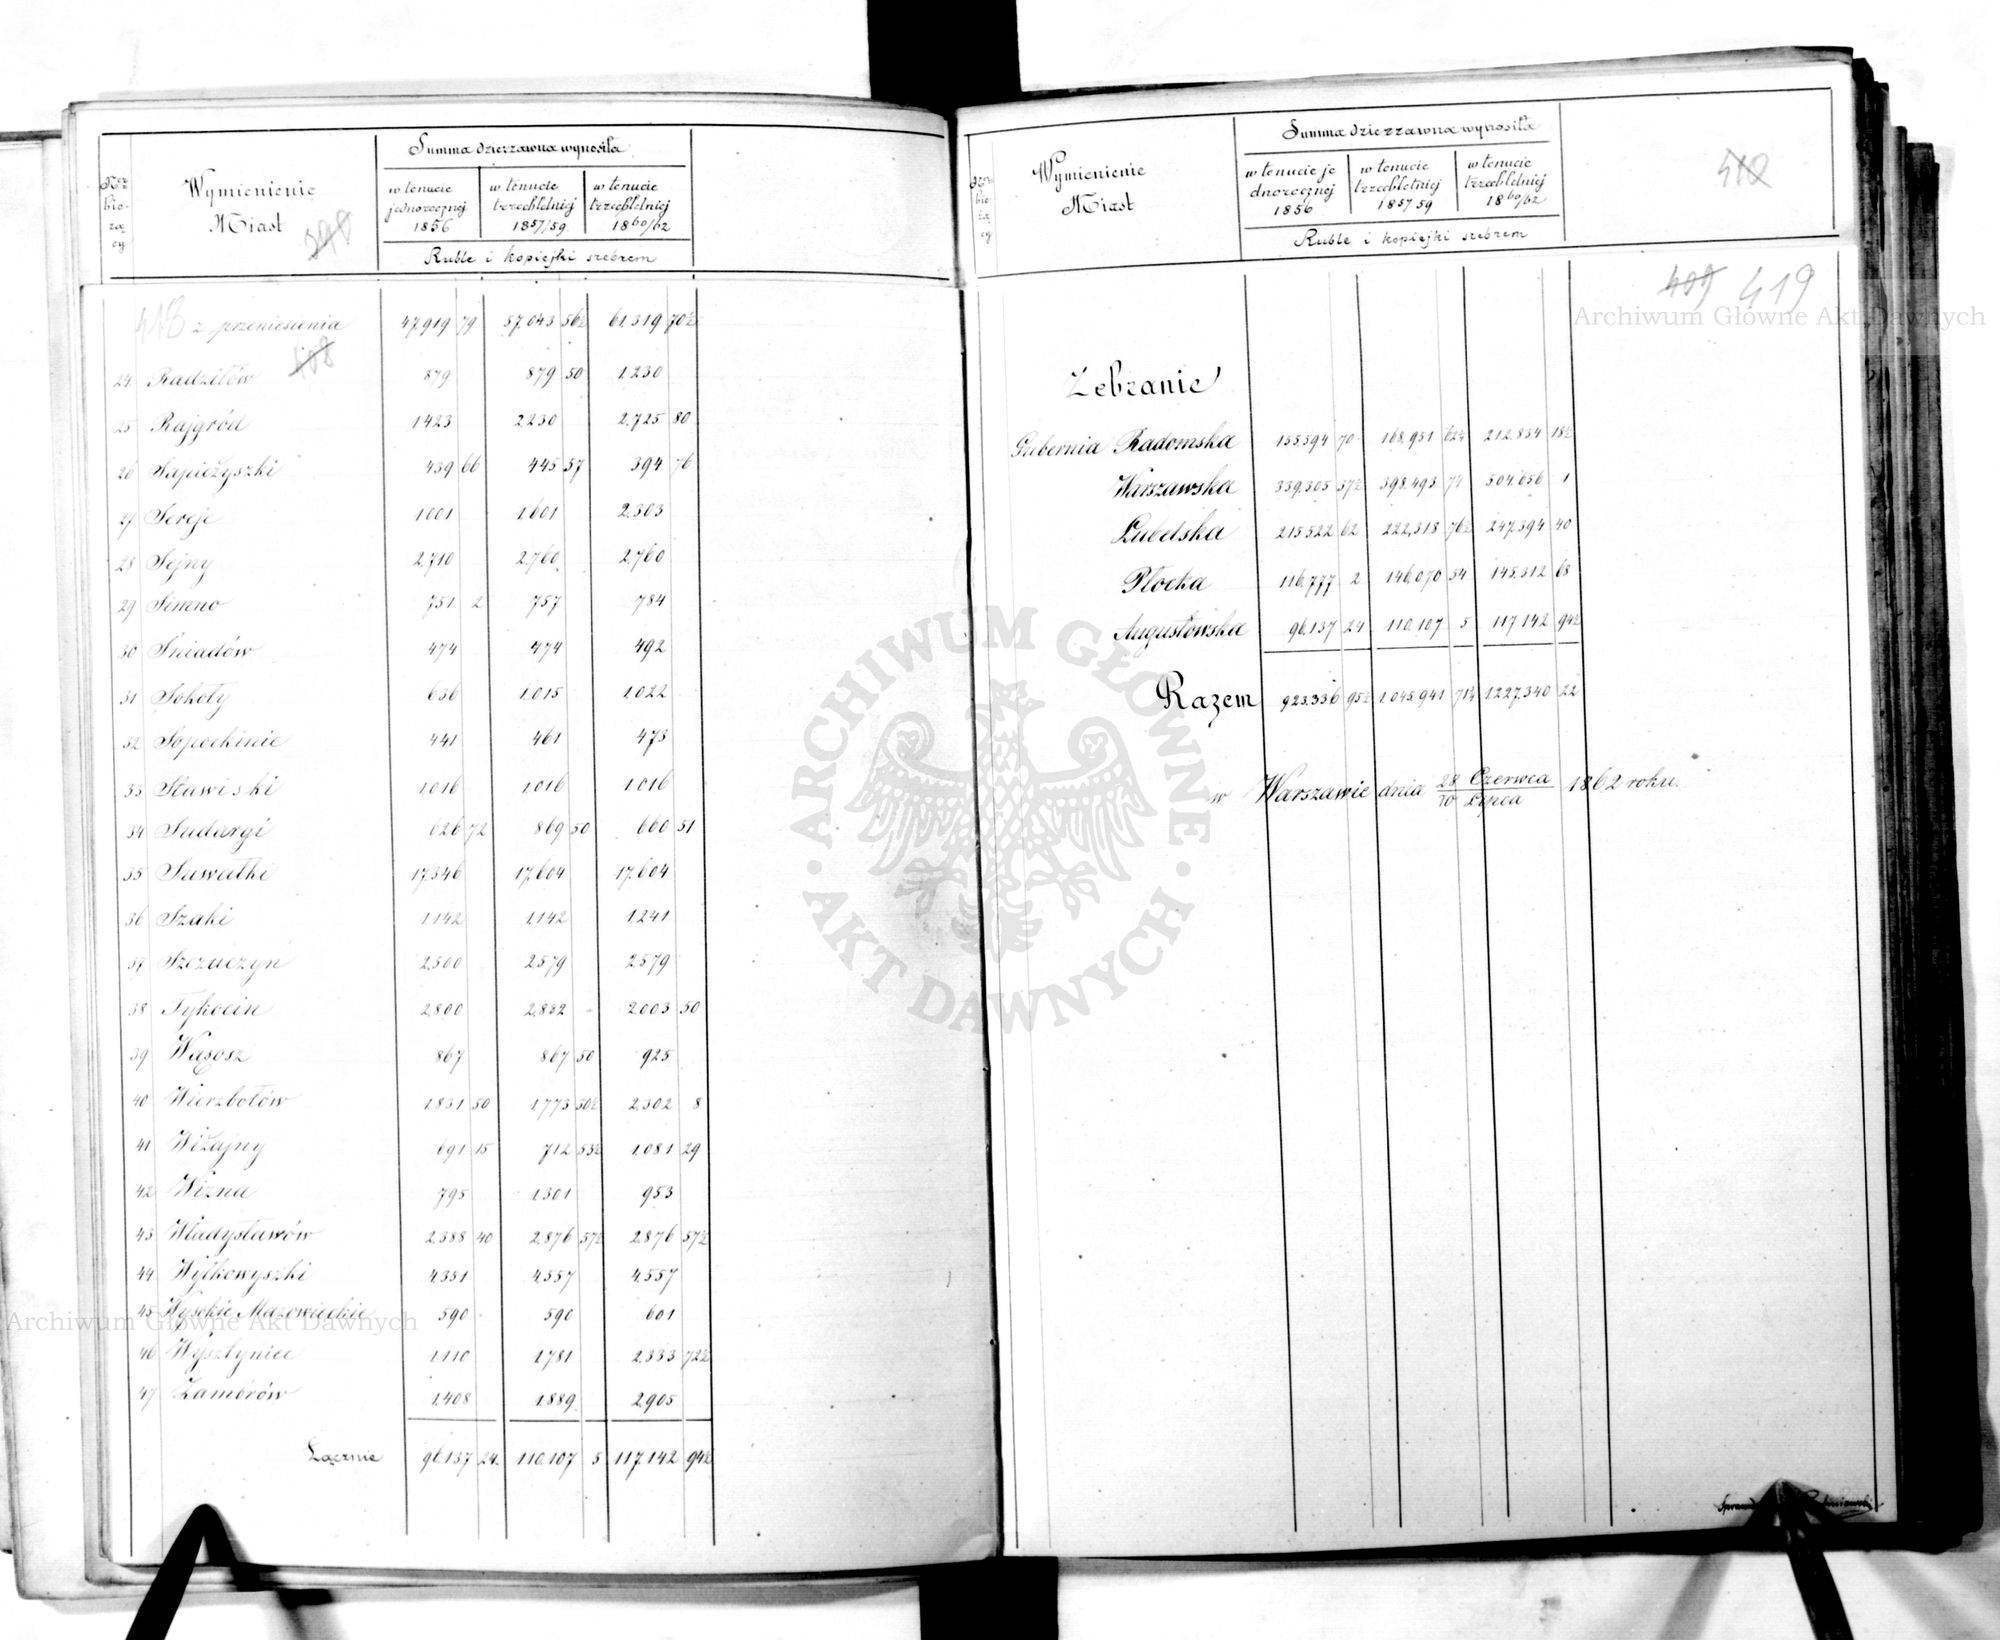 Nr bieżący
Wymienienie Miast
Summa dzierżawna wynosiła
w tenucie jednorocznej 1856
w tenucie trzechletniej 1857/59.
w tenucie trzechletniej 1860/62
Ruble i kopiejki srebrem
418 z przeniesienia 47,919 79 57,043 56½ 61,319 70½
408
24 Radziłów 879 879 50 1.230
25 Rajgród 1423 2230 2,725 80
26 Sapieżyszki 439 66 445 57 394 76
27 Sereje 1001 1.601 2,303
28 Sejny 2,710 2,760 2,760
29 Simno 751 2 757 784
30 Śniadów 474 474 492
31 Sokoły 636 1.015 1.022
32 Sopockinie 441 461 473
33 Stawiski 1.016 1.016 1.016
34 Sudargi 626 72 869 50 660 51
35 Suwałki 17,346 17,604 17,604
36 Szaki 1.142 1.142 1.241
37 Szczuczyn 2,500 2,579 2,579
38 Tykocin 2,800 2,832 2,003 50
39 Wąsosz 867 867 50 925
40 Wierzbołów 1,831 50 1,773 30½ 2,302 8
41 Wiżajny 691 15 712 53½ 1.081 29
42 Wizna 795 1301 953
43 Władysławów 2,388 40 2,876 57½ 2,876 57½
44 Wyłkowyszki 4,351 4,557 4,557
45 Wysokie Mazowieckie 590 590 601
46 Wysztyniec 1.110 1,781 2,333 72½
47 Zambrów 1,408 1.889 2,905
Łącznie 96,137 24 110,107 5 117,142 94½
Wymienienie Miast
Summa dzierżawna wynosiła
w tenucie jednorocznej 1856
w tenucie trzechletniej 1857/59
w tenucie trzechletniej 1860/62
Ruble i kopiejki srebrem
409 419
Zebranie
Gubernia Radomska 155,594 70 168,951 62½ 212,834 18½
Warszawska 339,305 37½ 398,493 74 504,656 1
Lubelska 215,522 62 222,318 76½ 247,394 40
Płocka 116,777 2 146,070 54 145,312 68
Augustowska 96,137 24 110,107 5 117,142 94½
Razem 923,336 95½ 1,045,941 71½ 1,227,340 22
w Warszawie dnia 28 Czerwca / 10 Lipca 1862 roku.
Archiwum Główne Akt Dawnych
Archiwum Główne Akt Dawnych
ARCHIWUM GŁÓWNE · AKT DAWNYCH ·